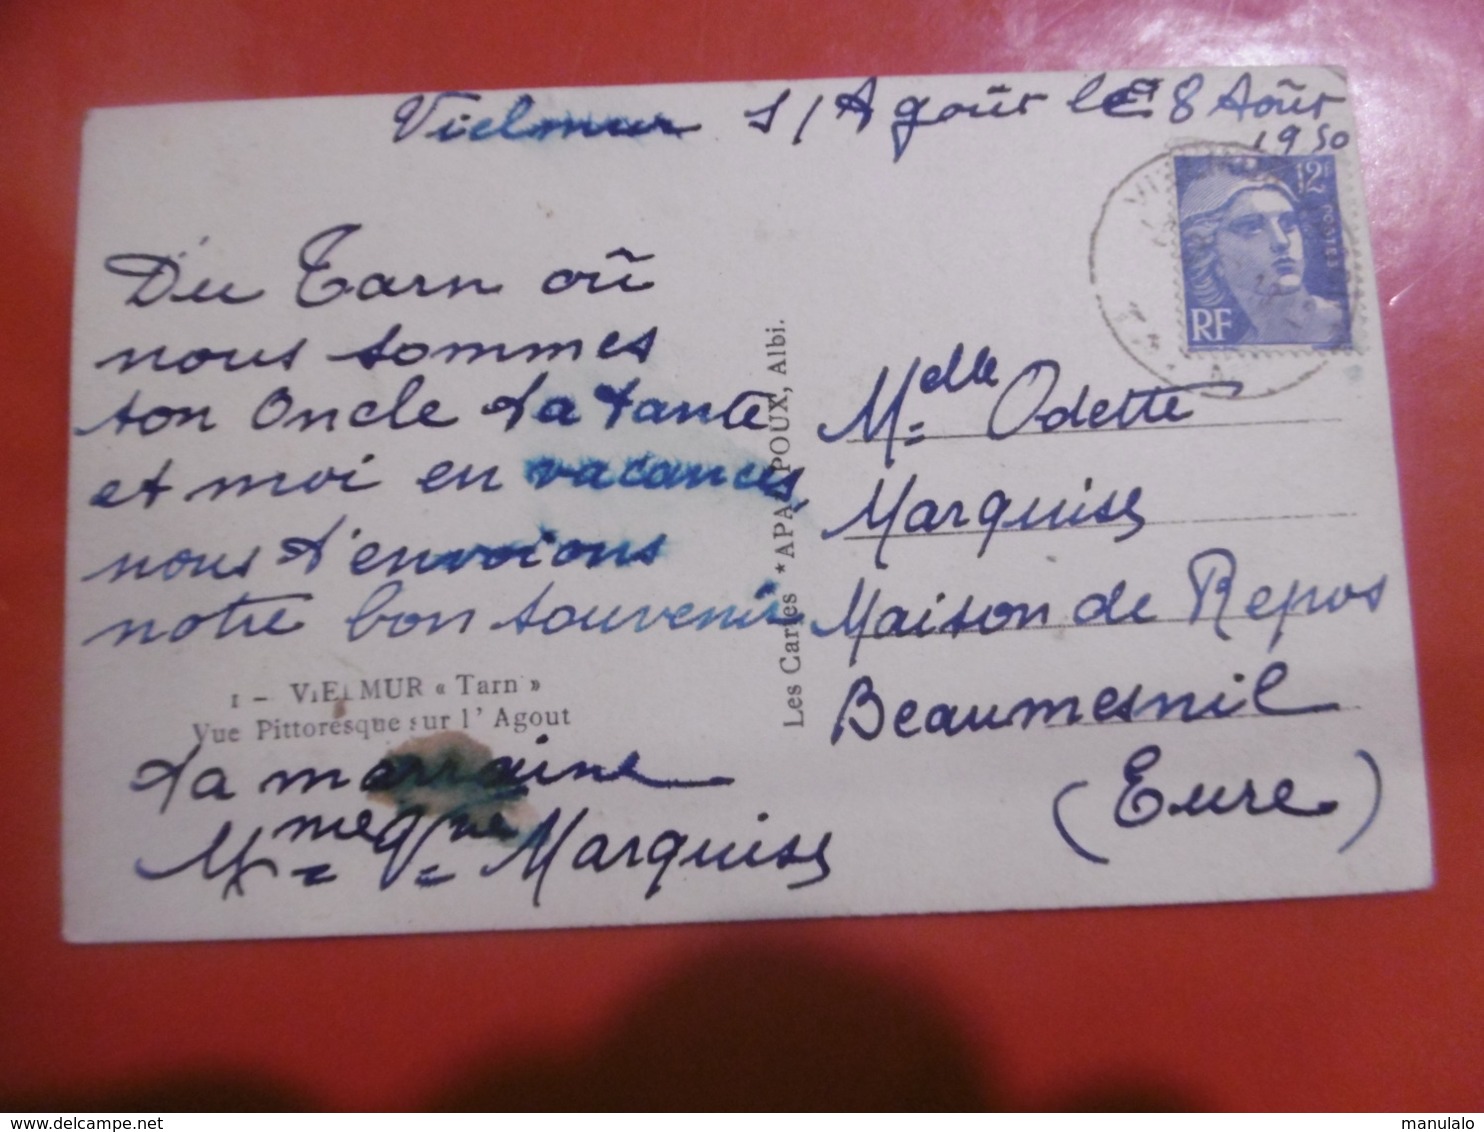 Vielmur s/Agoût le 8 Août
1950
12F
POSTES
RF
Du Tarn où
nous sommes
ton Oncle ta tante
et moi en vacances,
nous t'envoions
notre bon souvenir
1 - VIELMUR « Tarn »
Vue Pittoresque sur l'Agout
ta marraine
Mme Vve Marquis
Les Cartes *APA-POUX, Albi.
Melle Odette
Marquis
Maison de Repos
Beaumesnil
(Eure)
manulalo